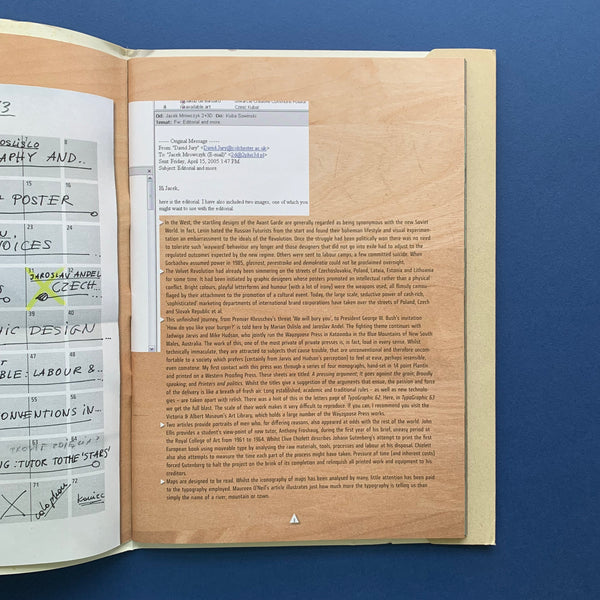 3
OSLISŁO
APHY AND...
15
16
POSTER
N.
OICES
31
32
JAROSLAV ANDEL
CZECH...
IC DESIGN
BLE: LABOUR & ..
CONVENTIONS IN...
NG: TUTOR TO THE 'STARS'
71
72
colophon
koniec
8
Od: Jacek Mrowczyk 2+3D Do: Kuba Sowinski
Temat: Fw: Editorial and more
----- Original Message -----
From: "David Jury"
To: "Jacek Mrowczyk (E-mail)"
Sent: Friday, April 15, 2005 3:47 PM
Subject: Editorial and more
Hi Jacek,
here is the editorial. I have also included two images, one of which you
might want to use with the editorial.
In the West, the startling designs of the Avant Garde are generally regarded as being synonymous with the new Soviet
World. In fact, Lenin hated the Russian Futurists from the start and found their bohemian lifestyle and visual experimen-
tation an embarrassment to the ideals of the Revolution. Once the struggle had been politically won there was no need
to tolerate such 'wayward' behaviour any longer and those designers that did not go into exile had to adjust to the
regulated outcomes expected by the new regime. Others were sent to labour camps, a few committed suicide. When
Gorbachev assumed power in 1985, glasnost, perestroika and demokratiia could not be proclaimed overnight.
The Velvet Revolution had already been simmering on the streets of Czechoslovakia, Poland, Latvia, Estonia and Lithuania
for some time. It had been initiated by graphic designers whose posters promoted an intellectual rather than a physical
conflict. Bright colours, playful letterforms and humour (with a lot of irony) were the weapons used, all flimsily camou-
flaged by their attachment to the promotion of a cultural event. Today, the large scale, seductive power of cash-rich,
'sophisticated' marketing departments of international brand corporations have taken over the streets of Poland, Czech
and Slovak Republic et al.
This unfinished journey, from Premier Khruschev's threat 'We will bury you', to President George W. Bush's invitation
'How do you like your burger?' is told here by Marian Oslislo and Jaroslav Andel. The fighting theme continues with
Jadwiga Jarvis and Mike Hudson, who jointly run the Wayzgoose Press in Katoomba in the Blue Mountains of New South
Wales, Australia. The work of this, one of the most private of private presses is, in fact, loud in every sense. Whilst
technically immaculate, they are attracted to subjects that cause trouble, that are unconventional and therefore uncom-
fortable to a society which prefers (certainly from Jarvis and Hudson's perception) to feel at ease, perhaps insensible,
even comatose. My first contact with this press was through a series of four monographs, hand-set in 14 point Plantin
and printed on a Western Proofing Press. These sheets are titled: A pressing argument; It goes against the grain; Broadly
speaking; and Printers and politics. Whilst the titles give a suggestion of the arguments that ensue, the passion and force
of the delivery is like a breath of fresh air. Long established, academic and traditional rules – as well as new technolo-
gies – are taken apart with relish. There was a hint of this in the letters page of TypoGraphic 62. Here, in TypoGraphic 63
we get the full blast. The scale of their work makes it very difficult to reproduce. If you can, I recommend you visit the
Victoria & Albert Museum's Art Library, which holds a large number of the Wayzgoose Press works.
Two articles provide portraits of men who, for differing reasons, also appeared at odds with the rest of the world. John
Ellis provides a student's view-point of new tutor, Anthony Froshaug, during the first year of his brief, uneasy period at
the Royal College of Art from 1961 to 1964. Whilst Clive Cholett describes Johann Gutenberg's attempt to print the first
European book using moveable type by analysing the raw materials, tools, processes and labour at his disposal. Cholett
also attempts to measure the time each part of the process might have taken. Pressure of time (and inherent costs)
forced Gutenberg to halt the project on the brink of its completion and relinquish all printed work and equipment to his
creditors.
Maps are designed to be read. Whilst the iconography of maps has been analysed by many, little attention has been paid
to the typography employed. Maureen O'Neil's article illustrates just how much more the typography is telling us than
simply the name of a river, mountain or town.